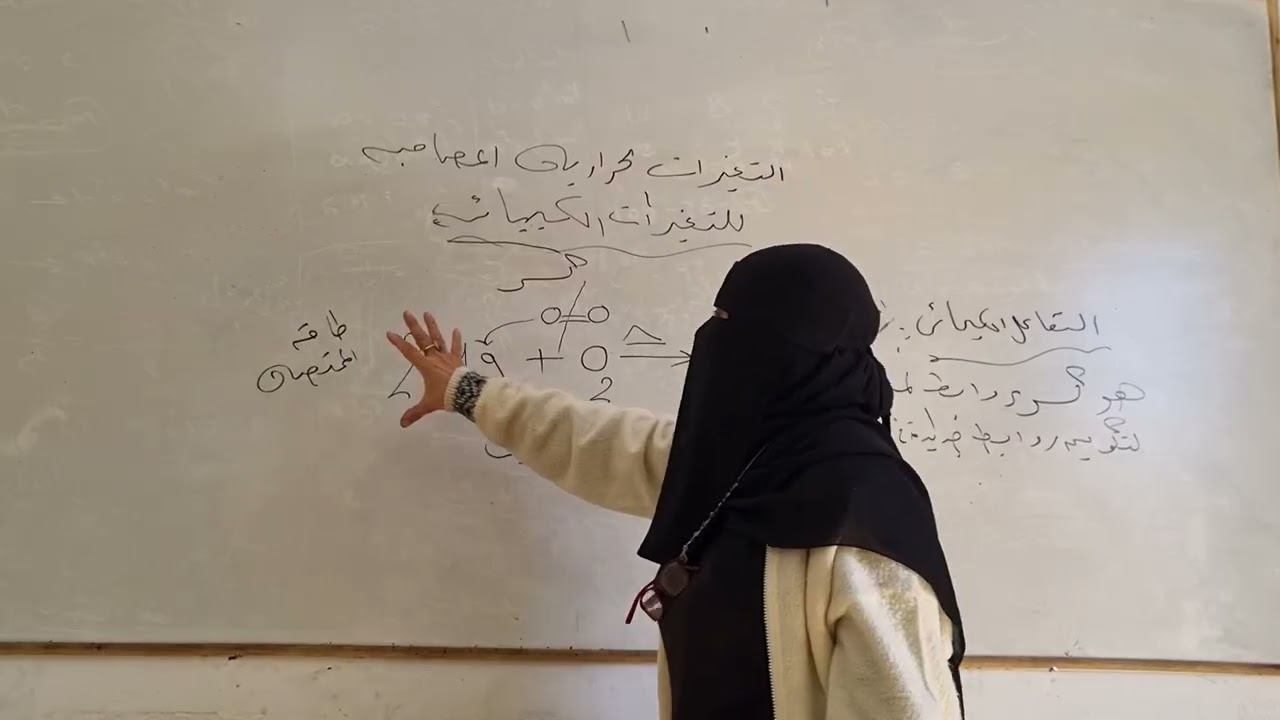 التغيرات الحرارية المصاحبه
للتغيرات الكيميائية
كسر
O=O
طاقه
الممتصه
2 Mg + O2 Δ→
التفاعل الكيميائي:
هو كسر روابط
لتكوين روابط جديدة